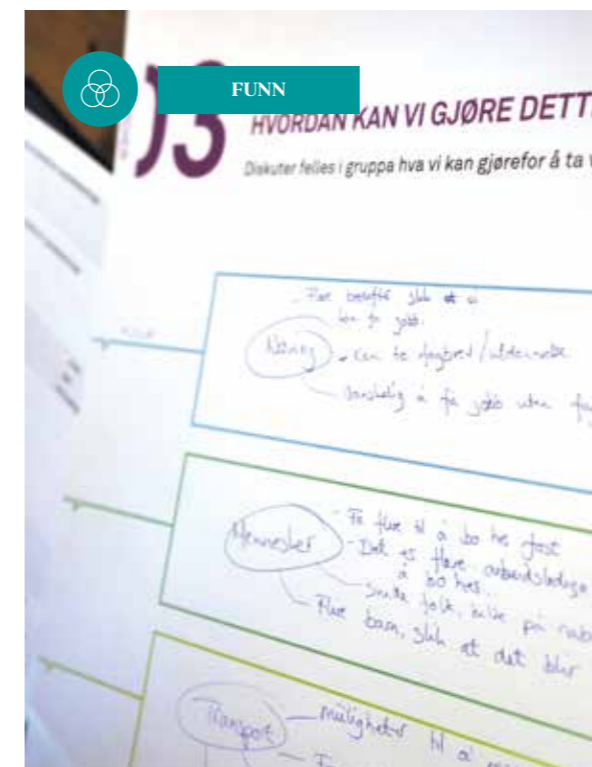 FUNN
03
HVORDAN KAN VI GJØRE DETT
Diskuter felles i gruppa hva vi kan gjørefor å ta v
Flere bedrifter slik at vi
kan få jobb.
Næring
Kan ta fagbrev/utdannelse
Vanskelig å få jobb uten
Mennesker
Få flere til å bo her fast
Det er flere arbeidsledige
å bo her.
folk, på
Flere barn, slik at det blir
Transport
muligheter til å